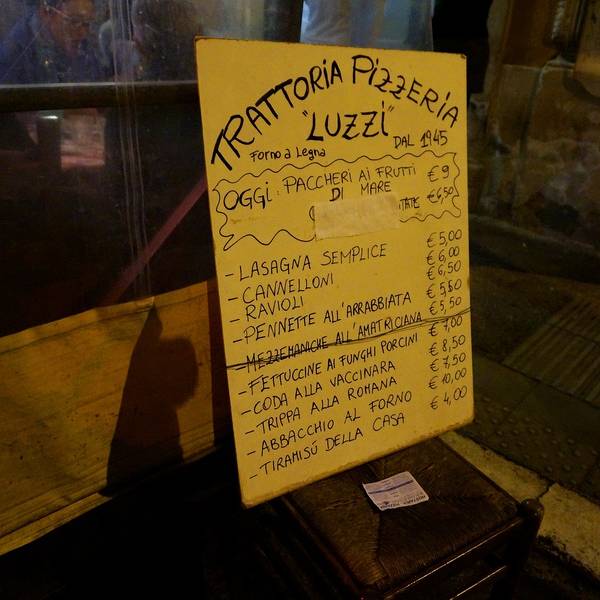 TRATTORIA PIZZERIA
"LUZZI"
Forno a Legna DAL 1945
OGGI: PACCHERI AI FRUTTI € 9
DI MARE
€6,50
- LASAGNA SEMPLICE €5,00
- CANNELLONI €6,00
- RAVIOLI €6,50
- PENNETTE ALL'ARRABBIATA €5,50
- MEZZEMANICHE ALL'AMATRICIANA €5,50
- FETTUCCINE AI FUNGHI PORCINI €7,00
- CODA ALLA VACCINARA €8,50
- TRIPPA ALLA ROMANA €7,50
- ABBACCHIO AL FORNO €10,00
- TIRAMISÚ DELLA CASA €4,00